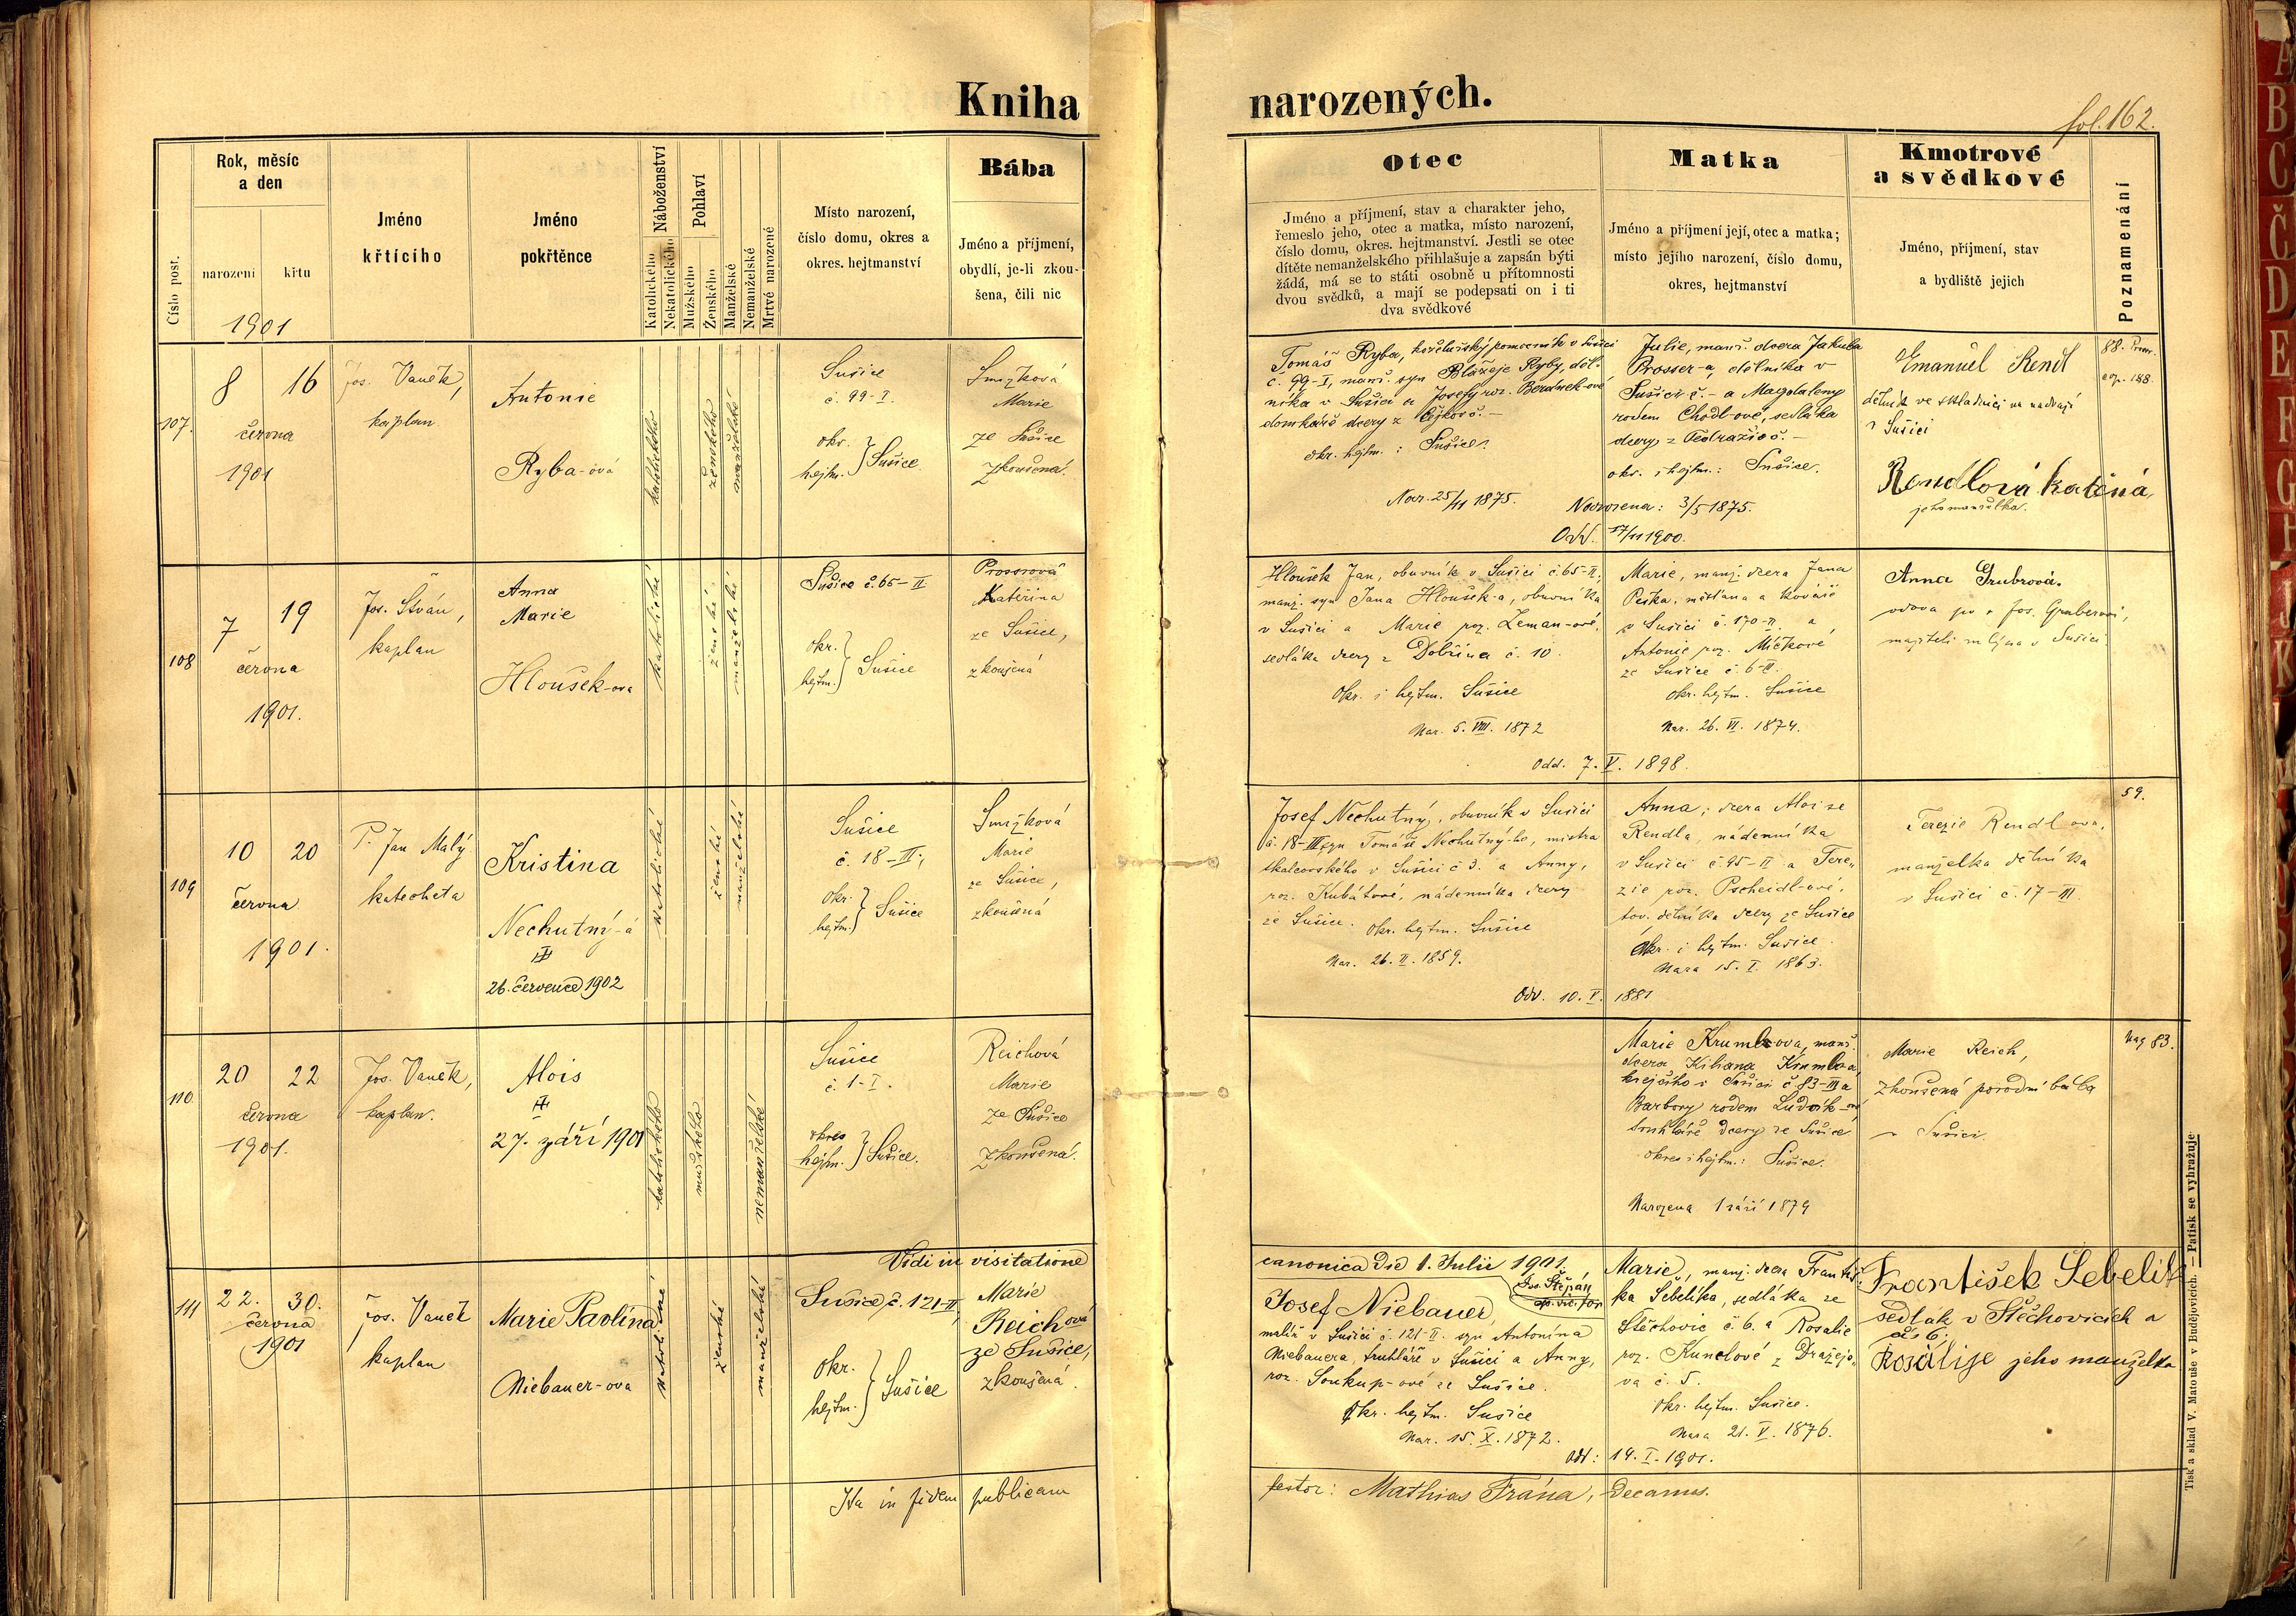 Kniha narozených.
fol. 162.
Číslo post.
Rok, měsíc
a den
narození
křtu
1901
Jméno
křtícího
Jméno
pokřtěnce
Náboženství
Katolického
Nekatolického
Pohlaví
Mužského
Ženského
Manželské
Nemanželské
Mrtvě narozené
Místo narození,
číslo domu, okres a
okres. hejtmanství
Bába
Jméno a příjmení,
obydlí, je-li zkou-
šena, čili nic
Otec
Jméno a příjmení, stav a charakter jeho,
řemeslo jeho, otec a matka, místo narození,
číslo domu, okres. hejtmanství. Jestli se otec
dítěte nemanželského přihlašuje a zapsán býti
žádá, má se to státi osobně u přítomnosti
dvou svědků, a mají se podepsati on i ti
dva svědkové
Matka
Jméno a příjmení její, otec a matka;
místo jejího narození, číslo domu,
okres, hejtmanství
Kmotrové
a svědkové
Jméno, příjmení, stav
a bydliště jejich
Poznamenání
107.
8 16
června
1901
Jos. Vaněk,
kaplan.
Antonie
Ryba-ová
katolického
ženského
manželské
Sušice
č. 99-I.
okr.
hejtm. } Sušice.
Smržková
Marie
ze Sušice
zkoušená.
Tomáš Ryba, koželužský pomocník v Sušici
č. 99-I, manž. syn Blažeje Ryby, děl-
níka v Sušici a Josefy roz.
domkáře dcery z
okr. hejtm.: Sušice.
Nar. 25/11 1875.
Julie, manž. dcera Jakuba
Prosser-a, dělníka v
Sušici č. – a Magdaleny
rodem Chodl-ové, sedláka
dcery z
okr. i hejtm.: Sušice.
Narozena: 3/5 1875.
Odd. 17/11 1900.
Emanuel Rendl
dělník ve skladišti na nádraží
v Sušici
Rendlová Kateřina,
jeho manželka.
88.
108
7 19
června
1901.
Jos. Štván,
kaplan
Anna
Marie
Hloušek-ova
katolické
ženské
manželské
Sušice č. 65-II
okr.
hejtm. } Sušice
Prosserová
Kateřina
ze Sušice,
zkoušená
Hloušek Jan, obuvník v Sušici č. 65-II;
manž. syn Jana Hloušek-a, obuvníka
v Sušici a Marie roz. Zeman-ové,
sedláka dcery z Dobřína č. 10.
Okr. i hejtm. Sušice
Nar. 5. VIII. 1872
Marie, manž. dcera Jana
Peška, měšťana a kováře
v Sušici č. 170-II a
Antonie roz. Míčkové
ze Sušice č. 6-II.
okr. hejtm. Sušice
Nar. 26. VI. 1874.
Odd. 7. V. 1898.
Anna Grubrová,
vdova po Jos. Gruberovi,
majiteli mlýna v Sušici
109
10 20
června
1901.
P. Jan Malý
katecheta
Kristina
Nechutný-á
26. července 1902
katolické
ženské
manželské
Sušice
č. 18-III;
okr.
hejtm. } Sušice
Smržková
Marie
ze Sušice,
zkoušená
Josef Nechutný, obuvník v Sušici
č. 18-III, syn Tomáše Nechutný-ho, mistra
tkalcovského v Sušici č. 3. a Anny,
roz. Kubátové, nádenníka dcery
ze Sušice. Okr. hejtm. Sušice
Nar. 26. II. 1859.
Anna, dcera Aloise
Rendla, nádenníka
v Sušici č. 95-II a Tere-
zie roz. Pscheidl-ové,
tov. dělníka dcery ze Sušice
Okr. i hejtm. Sušice.
Nar. 15. I. 1863.
Odd. 10. V. 1881
Terezie Rendlova,
manželka dělníka
v Sušici č. 17-III.
59.
110.
20 22
června
1901.
Jos. Vaněk,
kaplan.
Alois
27. září 1901
katolického
mužského
nemanželské
Sušice
č. 1-I.
okres
hejtm. } Sušice.
Reichová
Marie
ze Sušice
zkoušená.
Marie Krumlova, manž.
dcera Kiliana
krejčího v Sušici č. 83-III a
Barbory rodem Ludvík-ové
truhláře dcery ze Sušice
okres i hejtm.: Sušice.
Narozena 1 září 1879
Marie Reich,
zkoušená porodní bába
v Sušici.
Nag 83.
Vidi in visitatione canonica die 1. Julii 1901.
Jos. Štěpán
111
22. 30.
června
1901
Jos. Vaněk
kaplan
Marie Pavlína
Niebauer-ova
katolické
ženské
manželské
Sušice, č. 121-II,
Okr.
hejtm. } Sušice
Marie
Reichová
ze Sušice,
zkoušená.
Josef Niebauer,
malíř v Sušici č. 121-II. syn Antonína
Niebauera, truhláře v Sušici a Anny,
roz. Soukup-ové ze Sušice.
Okr. hejtm. Sušice
Nar. 15. X. 1872.
Marie, manž. dcera Františ-
ka Šebelíka, sedláka ze
Stěchovic č. 6. a Rosalie
roz. Kunclové z Dražejo-
va č. 5.
Okr. hejtm. Sušice.
Nar. 21. V. 1876.
Odd: 14. I. 1901.
František Šebelík
sedlák v Stěchovicích a
č. 6.
Rosalije jeho manželka
Ita in fidem publicam
testor: Mathias Frána, Decanus.
Tisk a sklad V. Matouše v Budějovicích. — Patisk se vyhražuje